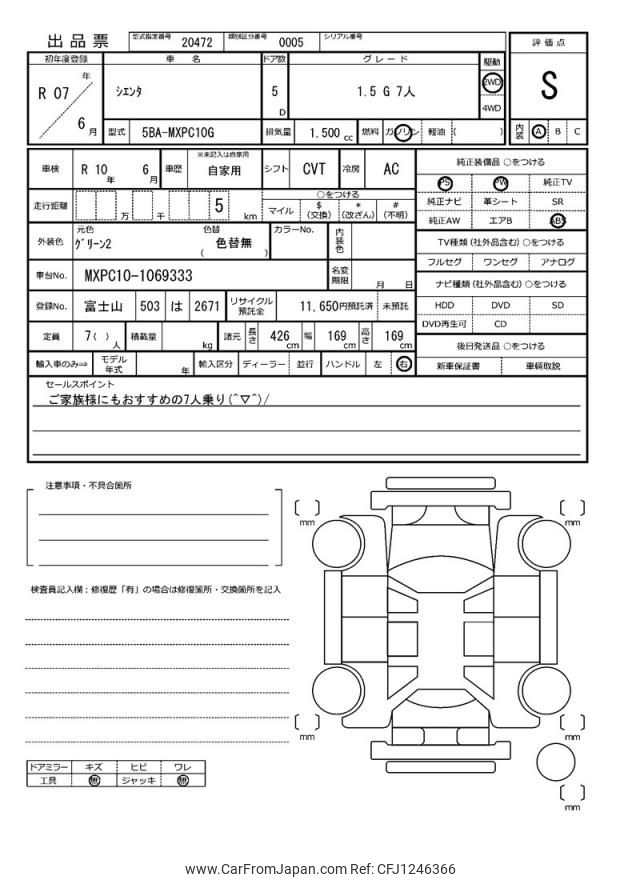 出品票 型式指定番号 20472 類別区分番号 0005 シリアル番号
評価点
S
初年度登録 車名 ドア数 グレード 駆動
R 07 年 6 月
シエンタ 5 D 1.5 G 7人 2WD
4WD
型式 5BA-MXPC10G 排気量 1.500 cc 燃料 ガソリン 軽油 ( )
内装 A B C
車検 R 10 年 6 月 車歴 ※未記入は自家用 自家用 シフト CVT 冷房 AC
純正装備品 ○をつける
PS PW 純正TV
純正ナビ 革シート SR
純正AW エアB ABS
走行距離 万 千 5 km
○をつける
マイル $(交換) *(改ざん) #(不明)
外装色 元色 グリーン2 色替 色替無 ( ) カラーNo. 内装色
TV種類 (社外品含む) ○をつける
フルセグ ワンセグ アナログ
車台No. MXPC10-1069333 名変期限 月 日
ナビ種類 (社外品含む) ○をつける
HDD DVD SD
DVD再生可 CD
登録No. 富士山 503 は 2671 リサイクル預託金 11,650円預託済 未預託
定員 7( ) 人 積載量 kg 諸元 長さ 426 cm 幅 169 cm 高さ 169 cm
後日発送品 ○をつける
新車保証書 車輌取説
輸入車のみ⇒ モデル年式 年 輸入区分 ディーラー 並行 ハンドル 左 右
セールスポイント
ご家族様にもおすすめの7人乗り(^▽^)/
注意事項・不具合箇所
検査員記入欄：修復歴「有」の場合は修復箇所・交換箇所を記入
mm
mm
mm
mm
mm
ドアミラー キズ ヒビ ワレ
工具 無 ジャッキ 無
www.CarFromJapan.com Ref: CFJ1246366